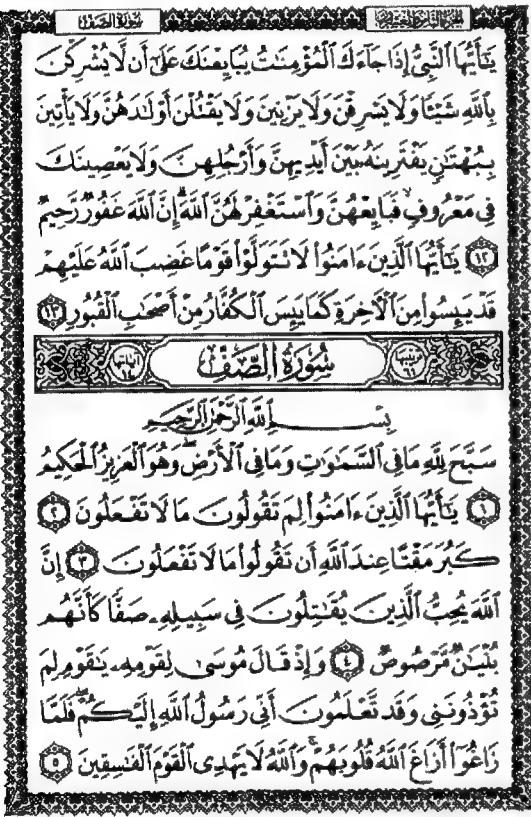 الجزء الثامن والعشرون سورة الصف
يَـٰٓأَيُّهَا ٱلنَّبِيُّ إِذَا جَآءَكَ ٱلْمُؤْمِنَـٰتُ يُبَايِعْنَكَ عَلَىٰٓ أَن لَّا يُشْرِكْنَ
بِٱللَّهِ شَيْـًٔا وَلَا يَسْرِقْنَ وَلَا يَزْنِينَ وَلَا يَقْتُلْنَ أَوْلَـٰدَهُنَّ وَلَا يَأْتِينَ
بِبُهْتَـٰنٍ يَفْتَرِينَهُۥ بَيْنَ أَيْدِيهِنَّ وَأَرْجُلِهِنَّ وَلَا يَعْصِينَكَ
فِى مَعْرُوفٍ ۙ فَبَايِعْهُنَّ وَٱسْتَغْفِرْ لَهُنَّ ٱللَّهَ ۖ إِنَّ ٱللَّهَ غَفُورٌ رَّحِيمٌ
١٢ يَـٰٓأَيُّهَا ٱلَّذِينَ ءَامَنُوا۟ لَا تَتَوَلَّوْا۟ قَوْمًا غَضِبَ ٱللَّهُ عَلَيْهِمْ
قَدْ يَئِسُوا۟ مِنَ ٱلْـَٔاخِرَةِ كَمَا يَئِسَ ٱلْكُفَّارُ مِنْ أَصْحَـٰبِ ٱلْقُبُورِ ١٣
ترتيبها ٦١ سُورَةُ الصَّفِّ آياتها ١٤
بِسْمِ ٱللَّهِ ٱلرَّحْمَـٰنِ ٱلرَّحِيمِ
سَبَّحَ لِلَّهِ مَا فِى ٱلسَّمَـٰوَٰتِ وَمَا فِى ٱلْأَرْضِ ۖ وَهُوَ ٱلْعَزِيزُ ٱلْحَكِيمُ
١ يَـٰٓأَيُّهَا ٱلَّذِينَ ءَامَنُوا۟ لِمَ تَقُولُونَ مَا لَا تَفْعَلُونَ ٢
كَبُرَ مَقْتًا عِندَ ٱللَّهِ أَن تَقُولُوا۟ مَا لَا تَفْعَلُونَ ٣ إِنَّ
ٱللَّهَ يُحِبُّ ٱلَّذِينَ يُقَـٰتِلُونَ فِى سَبِيلِهِۦ صَفًّا كَأَنَّهُم
بُنْيَـٰنٌ مَّرْصُوصٌ ٤ وَإِذْ قَالَ مُوسَىٰ لِقَوْمِهِۦ يَـٰقَوْمِ لِمَ
تُؤْذُونَنِى وَقَد تَّعْلَمُونَ أَنِّى رَسُولُ ٱللَّهِ إِلَيْكُمْ ۖ فَلَمَّا
زَاغُوٓا۟ أَزَاغَ ٱللَّهُ قُلُوبَهُمْ ۚ وَٱللَّهُ لَا يَهْدِى ٱلْقَوْمَ ٱلْفَـٰسِقِينَ ٥